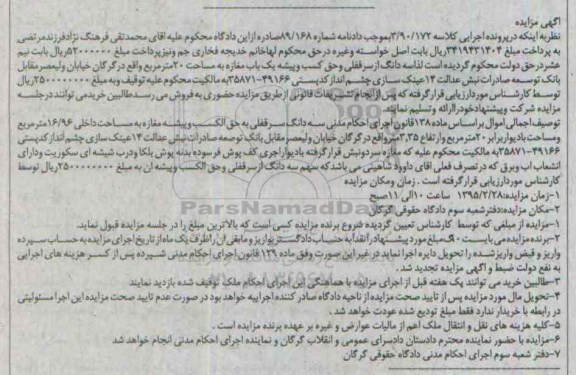 آگهی مزایده
نظر به اینکه در پرونده اجرایی کلاسه ۳/۹۰/۱۷۲ بموجب دادنامه شماره ۸۹/۱۶۸ صادره از این دادگاه محکوم علیه اقای محمدتقی فرهنگ نژاد فرزند مرتضی
به پرداخت مبلغ ۳۴۱۹۴۳۱۴۰۴ ریال بابت اصل خواسته و غیره در حق محکوم لها خانم خدیجه فخاری جم و نیز پرداخت مبلغ ۵۲۰۰۰۰۰۰ ریال بابت نیم
عشر در حق دولت محکوم گردیده است لذا سه دانگ از سرقفلی و حق کسب و پیشه یک باب مغازه به مساحت ۲۰ مترمربع واقع در گرگان خیابان ولیعصر مقابل
بانک توسعه صادرات نبش عدالت ۱۴ عینک سازی چشم انداز کدپستی ۴۹۱۶۶-۳۵۸۷۱ به مالکیت محکوم علیه توقیف و به مبلغ ۲۵۰۰۰۰۰۰۰۰ ریال
توسط کارشناس مورد ارزیابی قرار گرفته که پس از انجام تشریفات قانونی از طریق مزایده حضوری به فروش می رسد طالبین خرید می توانند در جلسه
مزایده شرکت و پیشنهاد خود را ارائه و تسلیم نمایند.
توصیف اجمالی اموال بر اساس ماده ۱۳۸ قانون اجرای احکام مدنی سه دانگ سرقفلی به حق الکسب و پیشه مغازه به مساحت داخلی ۱۶/۹۶ مترمربع
و مساحت با دیوار برابر ۲۰ مترمربع و ارتفاع ۳/۳۵ م واقع در گرگان خیابان ولیعصر مقابل بانک توصعه صادرات نبش عدالت ۱۴ عینک سازی چشم انداز کدپستی
۴۹۱۶۶-۳۵۸۷۱ به مالکیت محکوم علیه که مغازه سر دو نبش قرار گرفته با دیوار اجری کف پوش فرسوده بدنه پوش بلکا و درب شیشه ای سکوریت و دارای
انشعاب اب و برق که در تصرف فعلی اقای داوود شاهینی می باشد که سهم سه دانگ از سرقفلی و حق الکسب و پیشه ان به مبلغ ۲۵۰۰۰۰۰۰۰۰ ریال توسط
کارشناس مورد ارزیابی قرار گرفته است . زمان و مکان مزایده
۱-زمان مزایده: ۱۳۹۵/۲/۲۸ ساعت ۱۰ الی ۱۱ صبح
۲-مکان مزایده: دفتر شعبه سوم دادگاه حقوقی گرگان
۱-مزایده از مبلغی که توسط کارشناس تعیین گردیده شروع برنده مزایده کسی است که بالاترین مبلغ را در جلسه مزایده قبول نماید.
۲-برنده مزایده می بایست ۱۰٪ مبلغ مورد پیشنهاد را نقدا به حساب دادگستری واریز و مابقی ان را ظرف یک ماه از تاریخ اجرای مزایده به حساب سپرده
واریز و فیش واریز شده را تحویل دایره اجرا نماید در غیر این صورت وفق ماده ۱۲۹ قانون اجرای احکام مدنی سپرده پس از کسر هزینه های اجرایی
به نفع دولت ضبط و آگهی مزایده تجدید شد .
۳-طالبین خرید می توانند یک هفته قبل از اجرای مزایده با هماهنگی این اجرای احکام ملک توقیف شده بازدید نمایند
۴-تحویل مال مورد مزایده پس از تایید صحت مزایده از ناحیه دادگاه صادر کننده اجراییه خواهد بود در صورت عدم تایید صحت مزایده این اجرا مسئولیتی
در رابطه با خریدار ندارد فقط مبلغ تودیع شده عودت خواهد شد .
۵-کلیه هزینه های نقل و انتقال ملک اهم از مالیات عوارض و غیره بر عهده برنده مزایده است .
۶-مزایده با حضور نماینده محترم دادستان دادسرای عمومی و انقلاب گرگان و نماینده اجرای احکام مدنی انجام خواهد شد
۷-دفتر شعبه سوم اجرای احکام مدنی دادگاه حقوقی گرگان
ParsNamadData